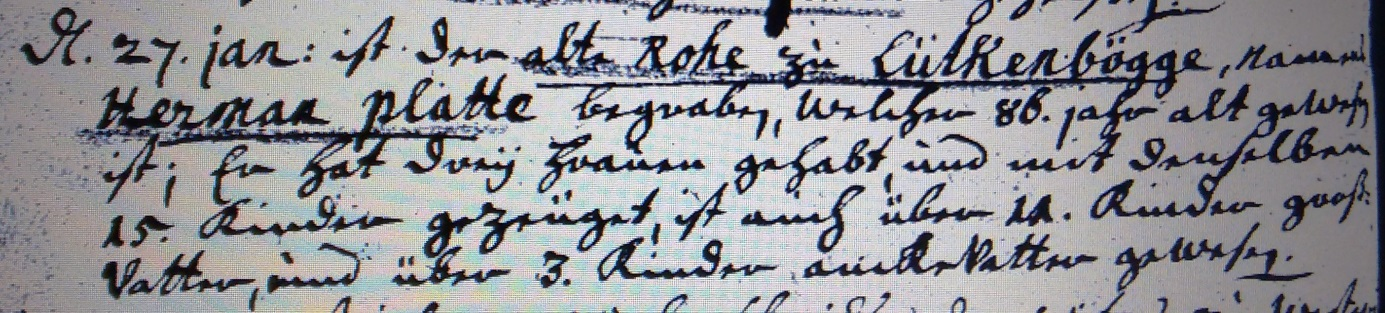 D. 27. jan: ist der alte Rohe zu Lütkenbögge, namen
Herman platte begraben, welcher 86. jahr alt gewesen
ist; Er hat dreÿ frauen gehabt, und mit denselben
15. Kinder gezeuget, ist auch über 11. Kinder groß-
Vatter, und über 3. Kinder anckeVatter gewesen.